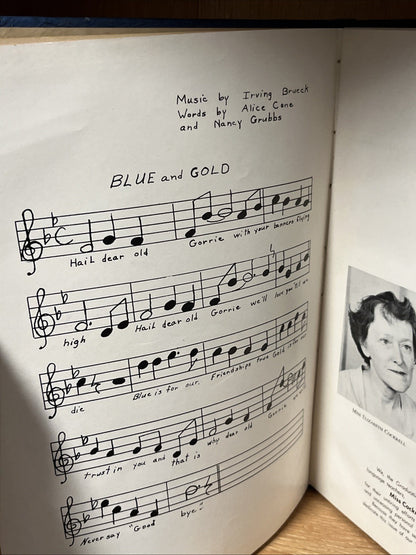 Music by Irving Brueck
Words by Alice Cone
and Nancy Grubbs
BLUE and GOLD
Hail dear old Gorrie with your banners flying
high Hail dear old Gorrie we'll love you 'til we
die Blue is for our Friendships true Gold is for our
trust in you and that is why dear old Gorrie we
Never say "Good bye"
MISS ELIZABETH COCKRELL
We, the Graduati
language
Miss Cock
for their
and